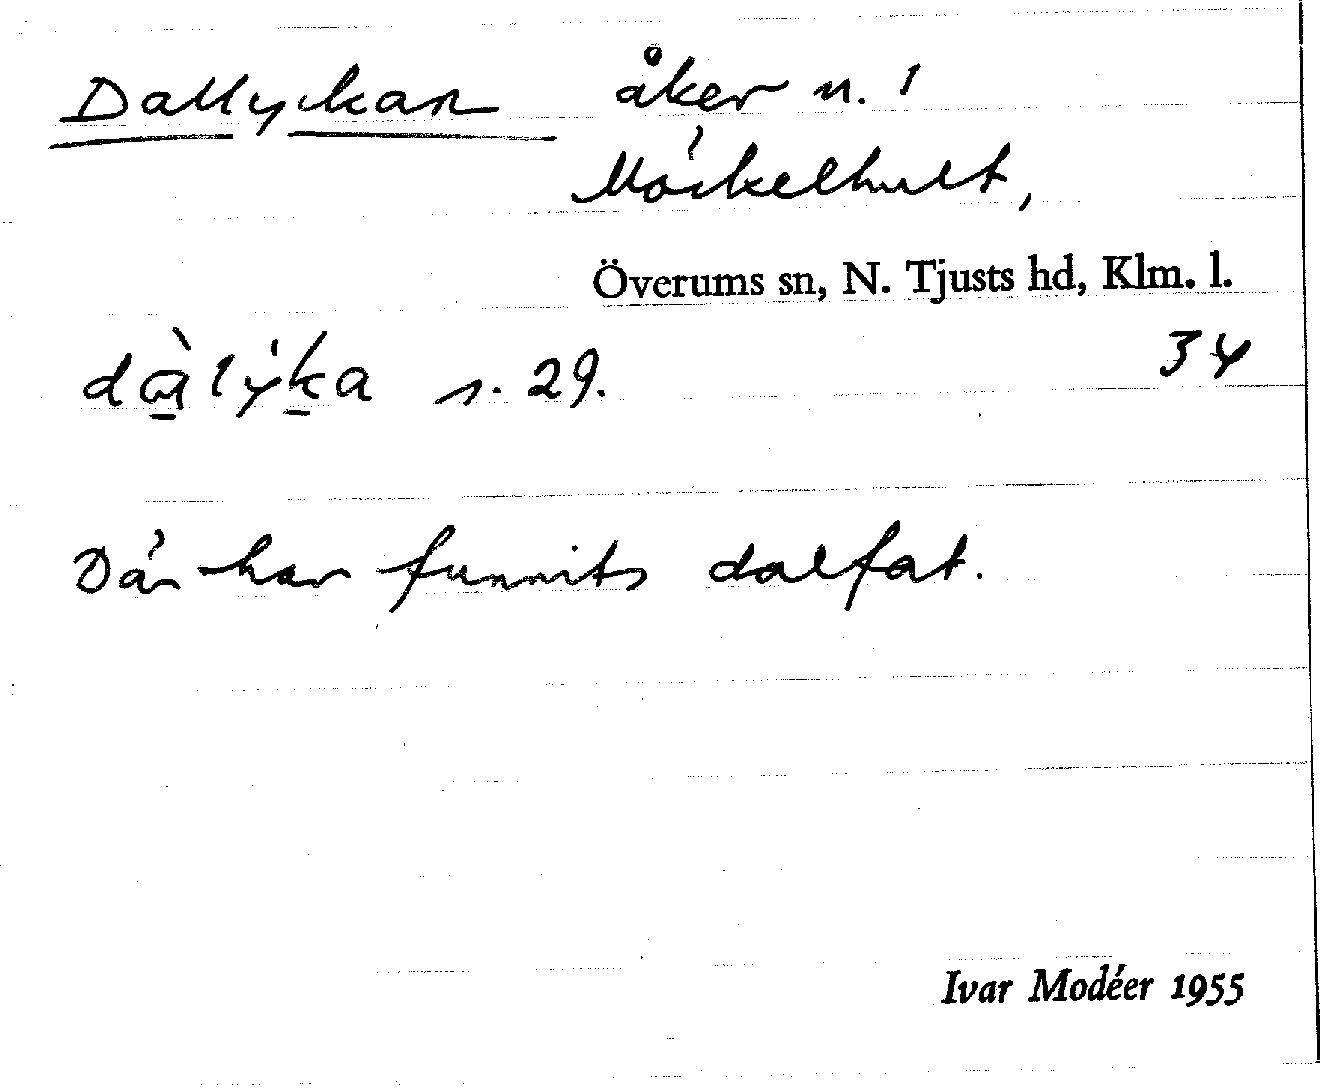 Dallyckan åker n. 1
Möckelhult,
Överums sn, N. Tjusts hd, Klm. l.
dàlýka s. 29. 34
Där har funnits dalfat.
Ivar Modéer 1955